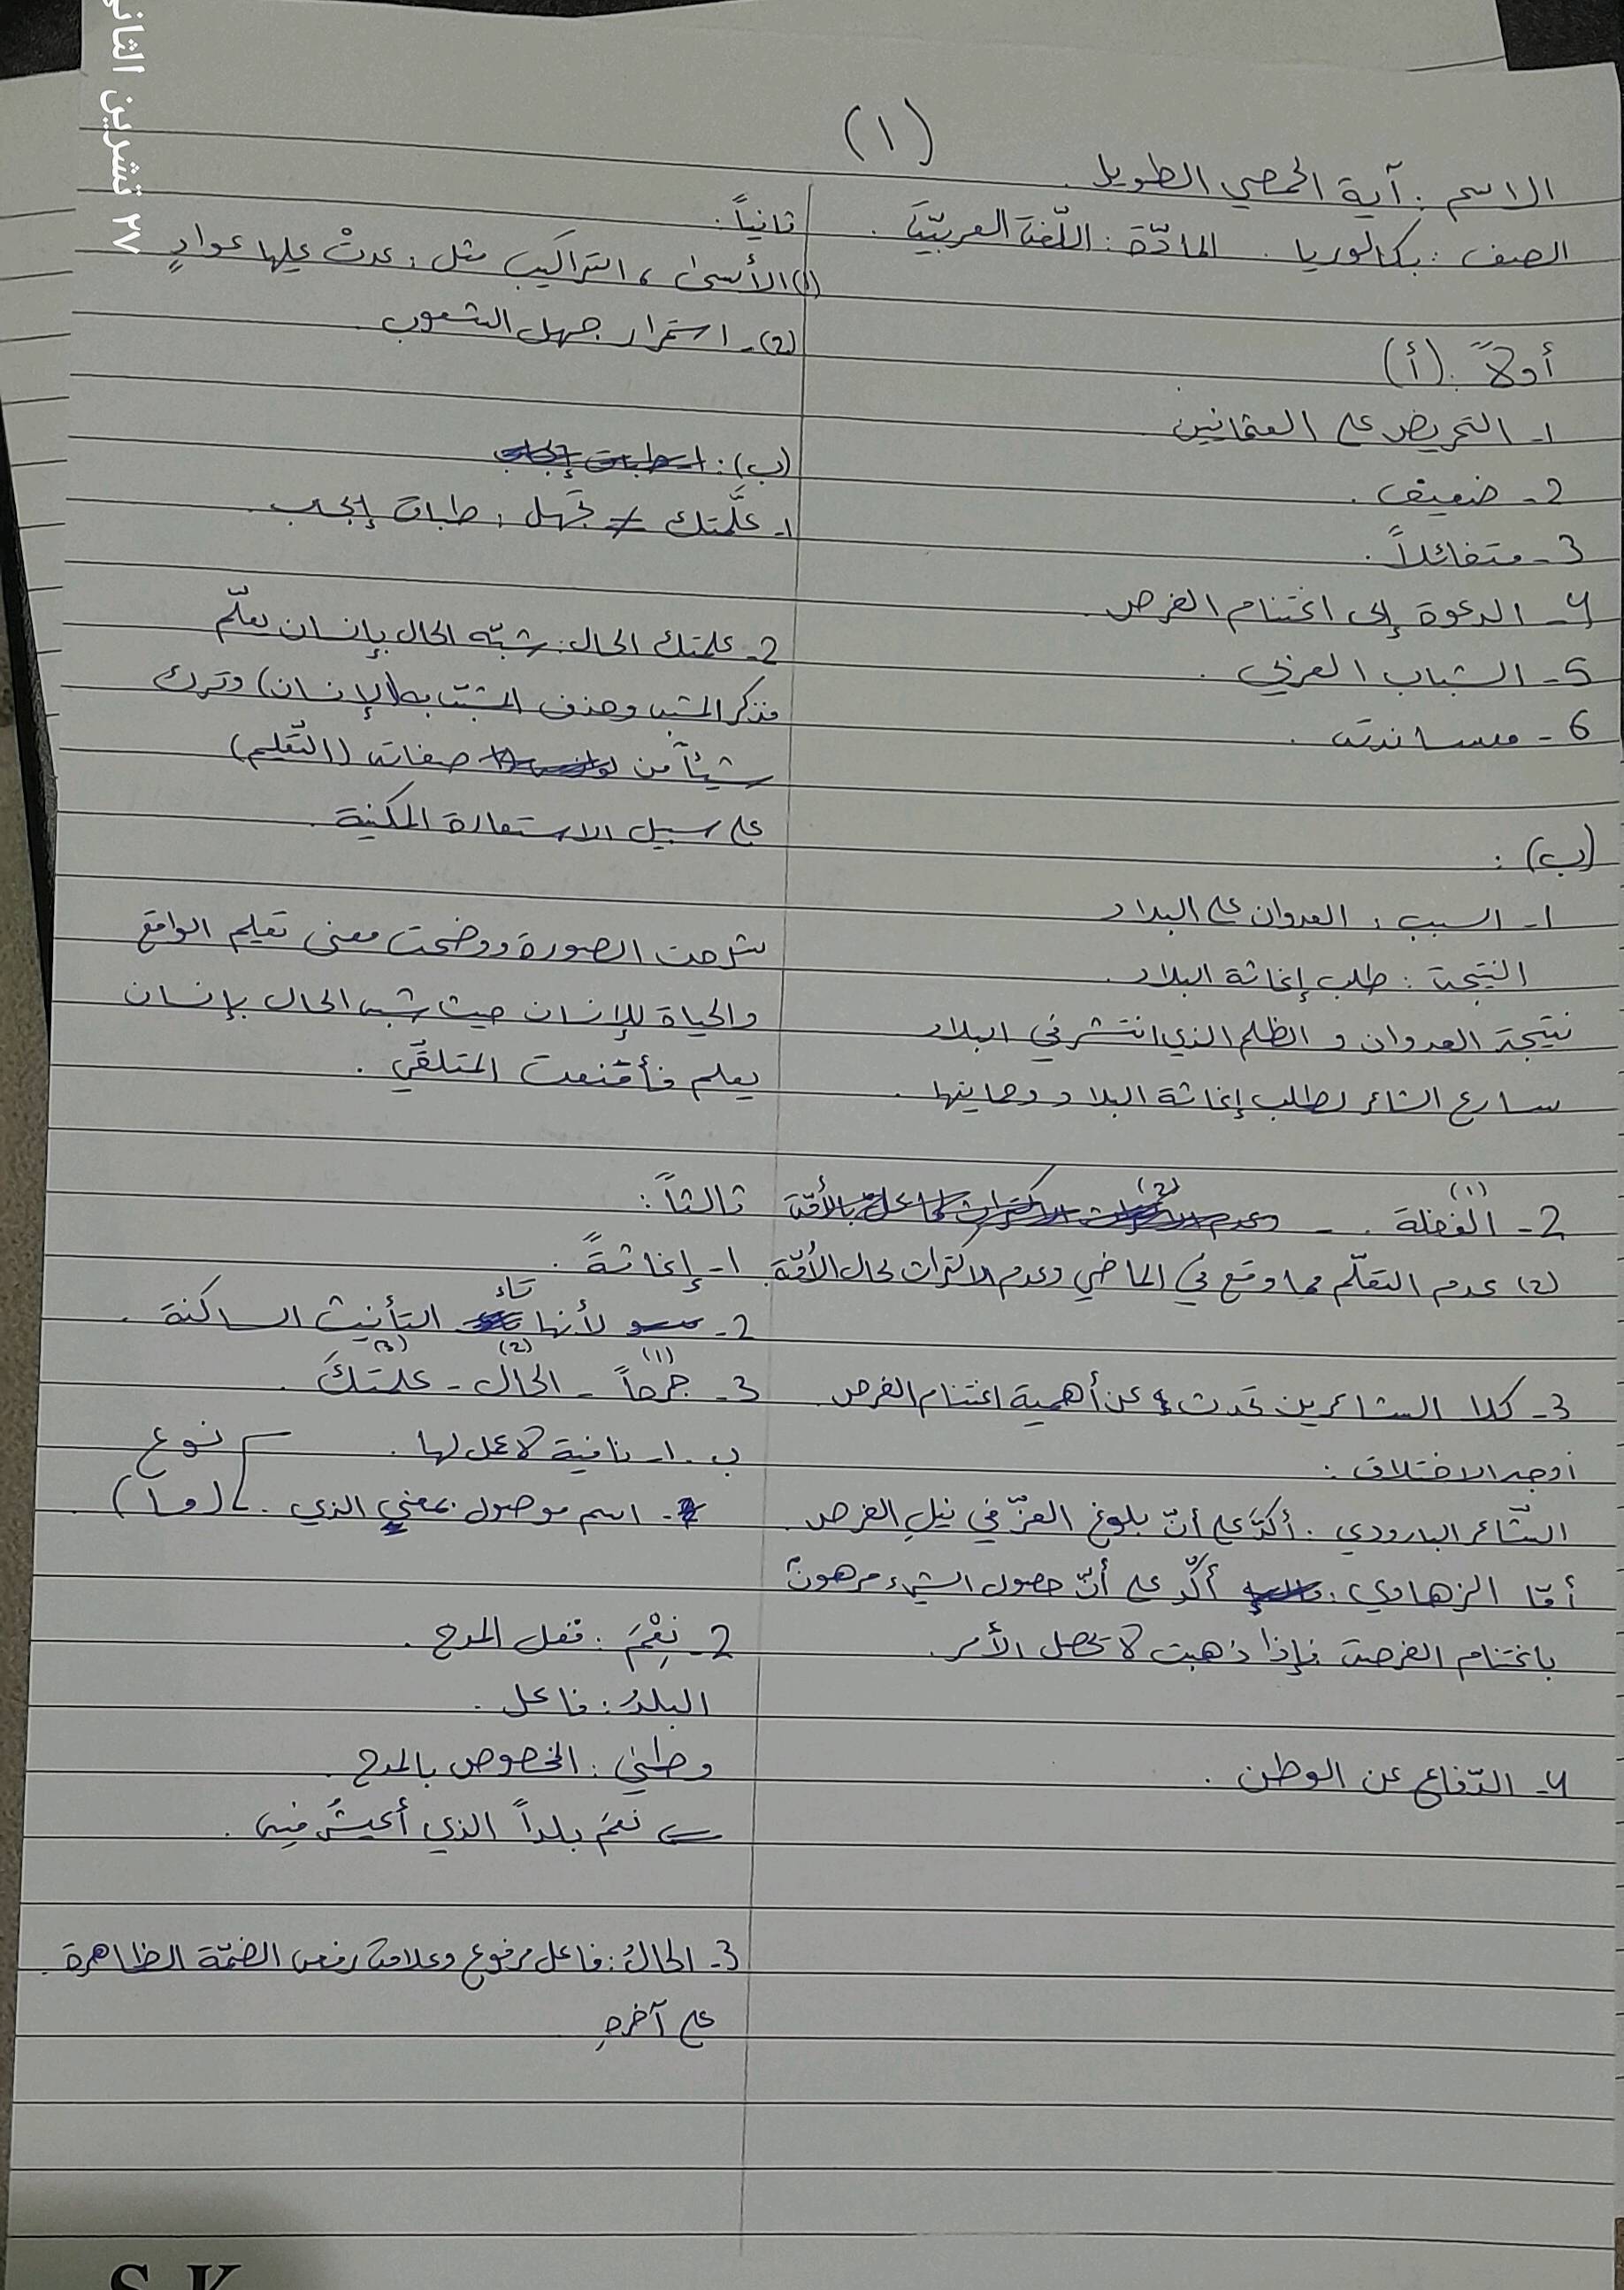 (١)
الاسم : آية الحمصي الطويل
الصف : بكالوريا . المادّة : اللّغة العربيّة .
أولاً : (أ)
١- التحريض على العثمانيين
2- ضعيف .
3- متفائلاً .
4- الدعوة إلى اغتنام الفرص
5- الشباب العربي .
6- مساندته .
(ب) :
١- السبب : العدوان على البلاد
النتيجة : طلب إغاثة البلاد .
نتيجة العدوان و الظلم الذي انتشر في البلاد
سارع الشاعر لطلب إغاثة البلاد وحمايتها .
(١) (2)
2- الغفلة . -
(2) عدم التعلّم مما وقع في الماضي وعدم الاكتراث لحال الأمّة .
3- كلا الشاعرين تحدث عن أهمية اغتنام الفرص
أوجه الاختلاف :
الشّاعر البارودي : أكدّ على أنّ بلوغ العزّ في نيلِ الفرص
أمّا الزهاوي : أكّد على أنّ حصول الشيء مرهونٌ
باغتنام الفرصة فإذا ذهبت لا تحصل الأمر .
4- الدّفاع عن الوطن .
ثانياً :
(١) الأسى ، التراكيب مثل : عدتْ عليها عوادٍ
(2)- استمرار جهل الشعوب
(ب) :
١- علَّمتك ≠ تجهل : طباق إيجاب .
2- علمتك الحال : شبّه الحال بإنسان يعلّم
فذكر المشبه وحذف المشبّه به (الإنسان) وترك
شيئاً من صفاته (التّعليم)
على سبيل الاستعارة المكنية .
شرحت الصورة ووضحت معنى تعليم الواقع
والحياة للإنسان حيث شبه الحال بإنسان
يعلم فأقنعت المتلقّي .
ثالثاً :
١- إغاثةً .
2- لأنها تاء التأنيث الساكنة .
(١) (2) (3)
3- جرحاً - الحال - علمتكَ .
ب . ١- نافية لا عمل لها . نوع
- اسم موصول بمعنى الذي . (ما)
2- نِعْمَ : فعل المدح .
البلدُ : فاعل .
وطني : المخصوص بالمدح .
نعمَ بلداً الذي أعيشُ فيه .
3- الحالُ : فاعل مرفوع وعلامة رفعه الضمّة الظاهرة
على آخرهِ
٢٧ تشرين الثاني
S K